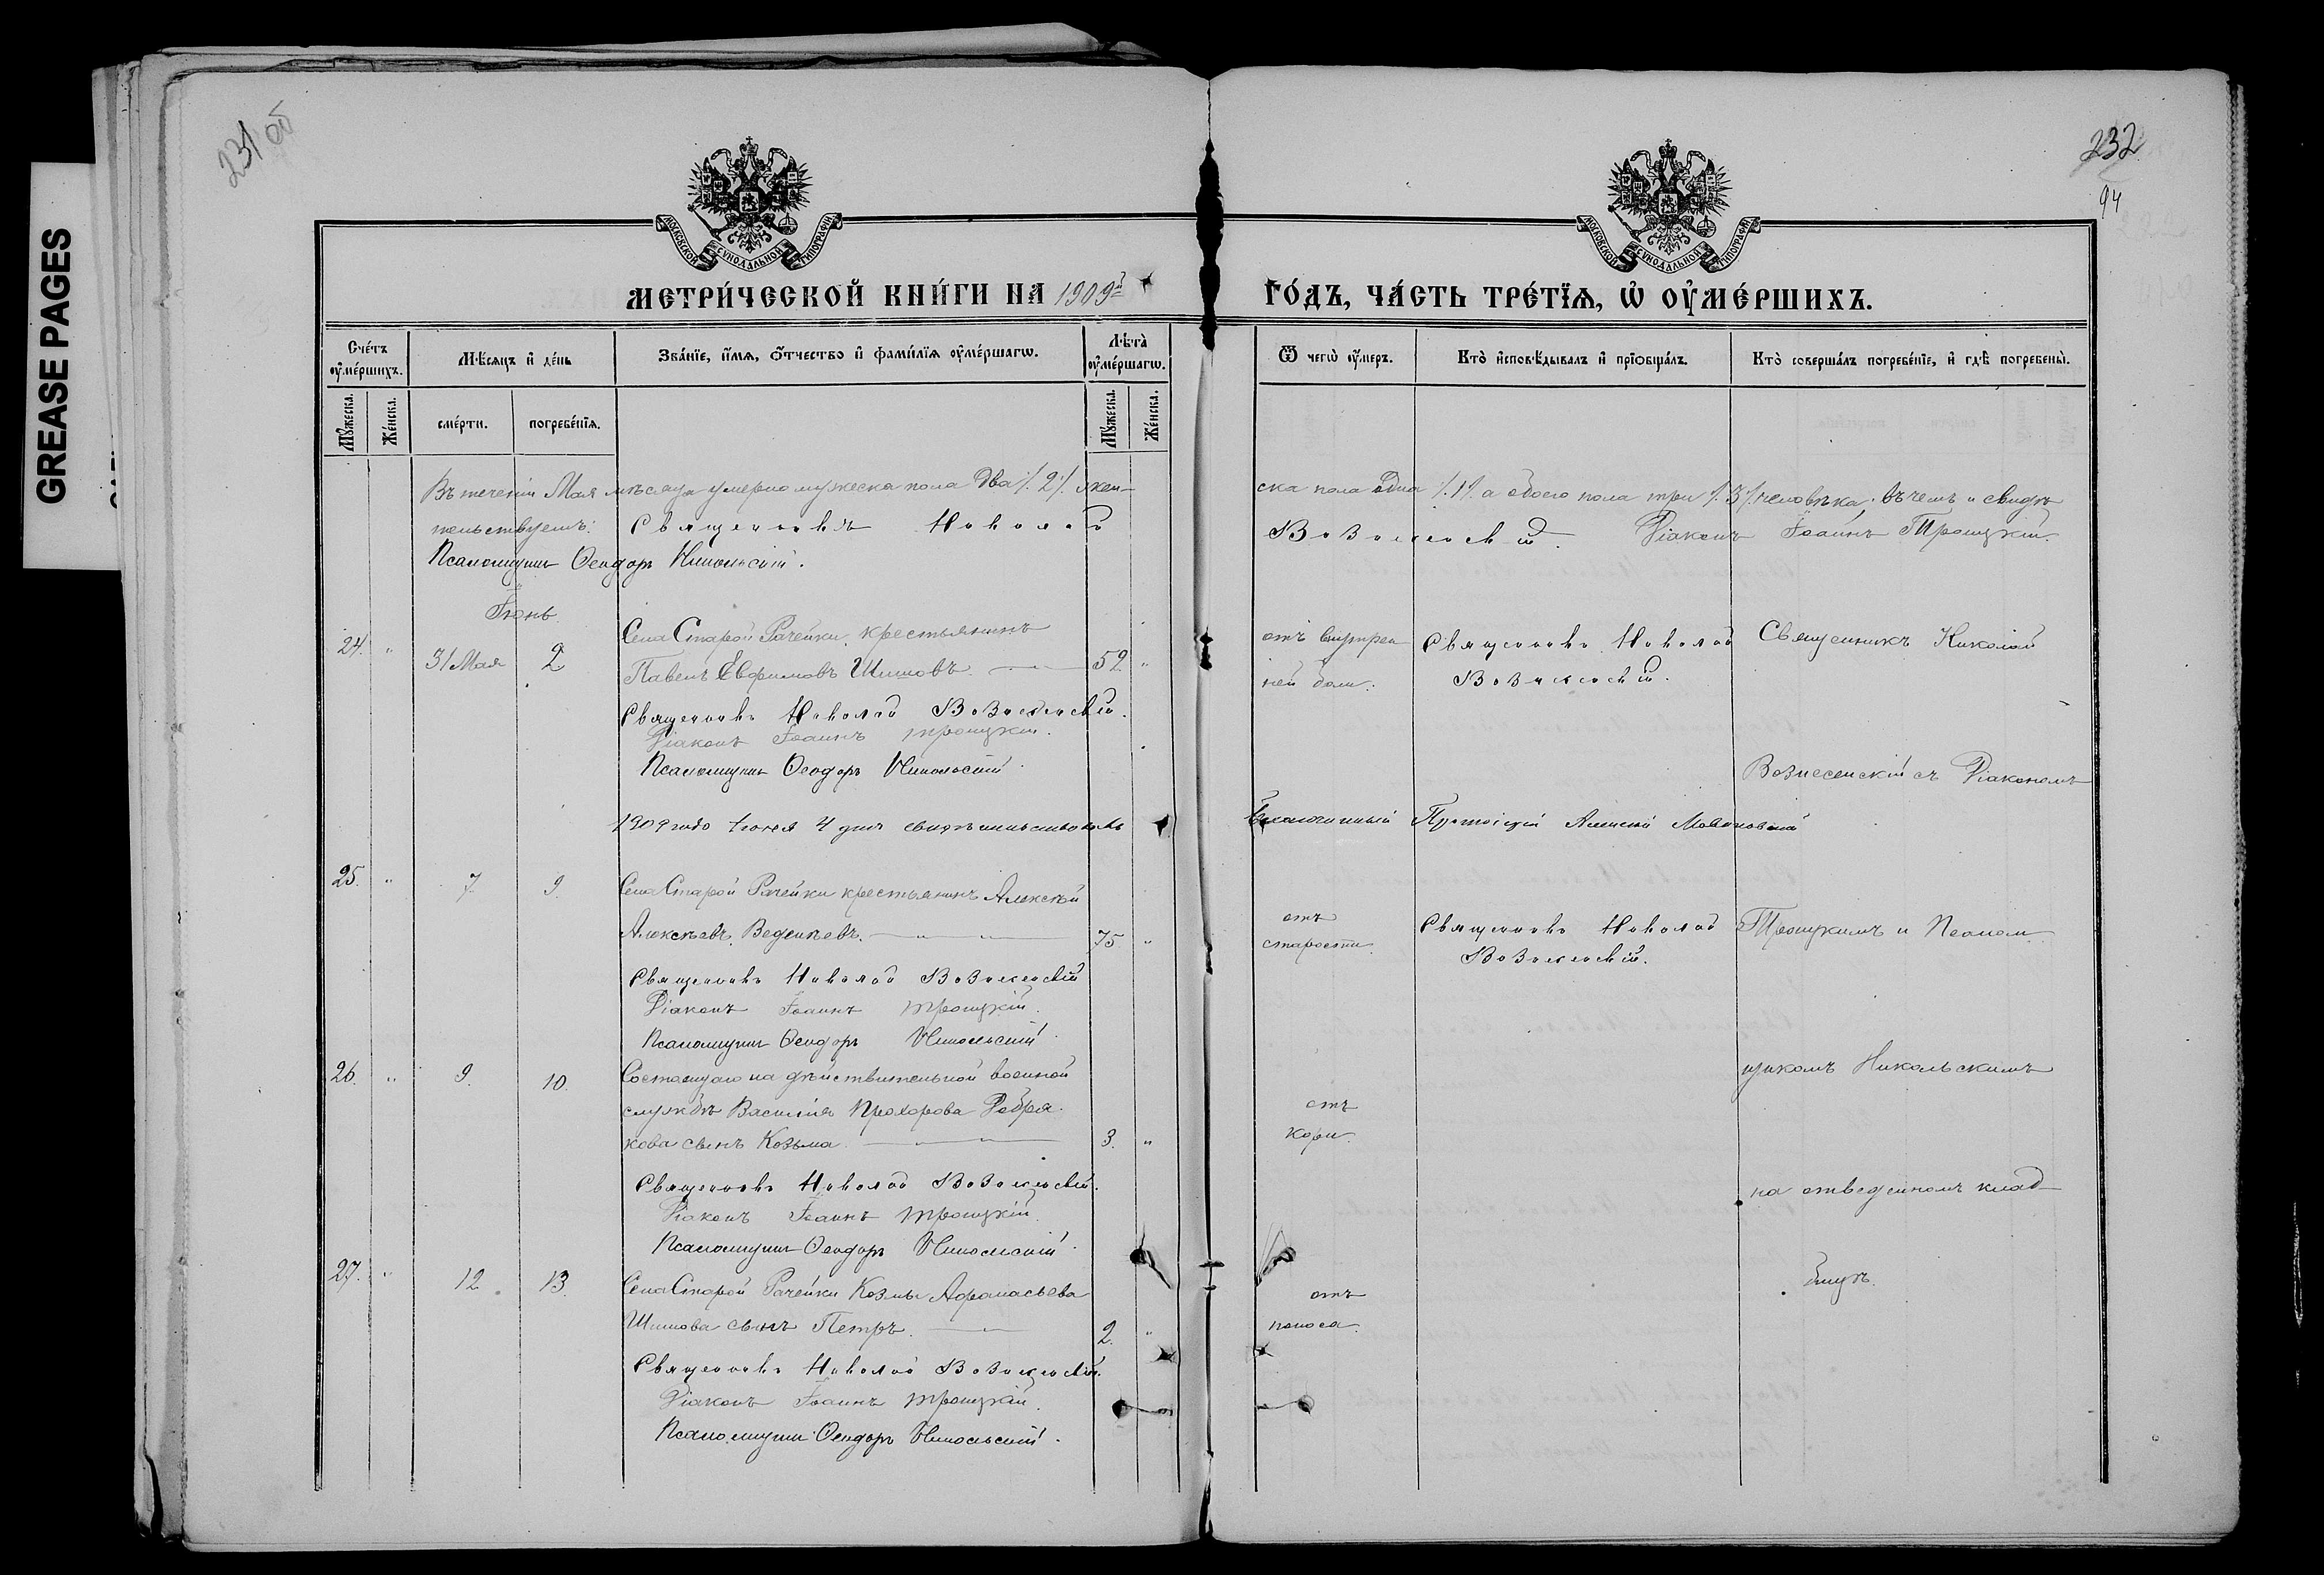 GREASE PAGES
231 об
232
94
МОСКОВСКОЙ СѴНОДАЛЬНОЙ ТИПОГРАФІИ
МОСКОВСКОЙ СѴНОДАЛЬНОЙ ТИПОГРАФІИ
МЕТРИ́ЧЕСКОЙ КНИ́ГИ НА 1909й ГО́ДЪ, ЧА́СТЬ ТРЕ́ТІѦ, Ѡ ОУ҆МЕ́РШИХЪ.
Сче́тъ оу҆ме́ршихъ.
Мꙋ́жеска.
Же́нска.
Мѣ́сяцъ и҆ де́нь
сме́рти.
погребе́нїя.
Зва́нїе, и҆́мя, ѻ҆́тчество и҆ фами́лїя оу҆ме́ршагѡ.
Лѣ̑та̀ оу҆ме́ршагѡ.
Мꙋ́жеска.
Же́нска.
Ѿ чегѡ̀ оу҆́меръ.
Кто̀ и҆сповѣ́дывалъ и҆ прїобща́лъ.
Кто̀ соверша́лъ погребе́нїе, и҆ гдѣ̀ погребены̀.
Въ теченіи Мая мѣсяца умерло мужеска пола два ⁒ 2 ⁒ жен-
ска пола одна ⁒ 1 ⁒ а обоего пола три ⁒ 3 ⁒ человѣка; въ чемъ и свидѣ
тельствуемъ: Священникъ Николай Вознесенскій. Діаконъ Іоаннъ Троицкій.
Псаломщикъ Ѳеодоръ Никольскій.
Іюнь.
24. " 31 Мая 2
Села Старой Рачейки, крестьянинъ
Павелъ Евфимовъ Шишовъ. 52 "
отъ внутрен
ней боли.
Священникъ Николай
Вознесенскій.
Священникъ Николай
Священникъ Николай Вознесенскій.
Діаконъ Іоаннъ Троицкій.
Псаломщикъ Ѳеодоръ Никольскій.
Вознесенскій съ Діакономъ
1909 года Іюня 4 дня свидѣтельствовалъ
Благочинный Протоіерей Алексій
25. " 7 9.
Села Старой Рачейки крестьянинъ Алексѣй
Алексѣевъ Веденѣевъ. 75 "
отъ
старости.
Священникъ Николай
Вознесенскій.
Троицкимъ и Псалом
Священникъ Николай Вознесенскій
Діаконъ Іоаннъ Троицкій.
Псаломщикъ Ѳеодоръ Никольскій.
26. " 9. 10.
Состоящаго на дѣйствительной военной
службѣ Василія Прохорова Ребря-
кова сынъ Козьма. 3. "
отъ
кори.
щикомъ Никольскимъ
Священникъ Николай Вознесенскій.
Діаконъ Іоаннъ Троицкій.
Псаломщикъ Ѳеодоръ Никольскій.
на отведенномъ клад-
27. " 12. 13.
Села Старой Рачейки Козмы Афанасьева
Шишова сынъ Петръ. 2. "
отъ
поноса.
бищѣ.
Священникъ Николай Вознесенскій.
Діаконъ Іоаннъ Троицкій.
Псаломщикъ Ѳеодоръ Никольскій.